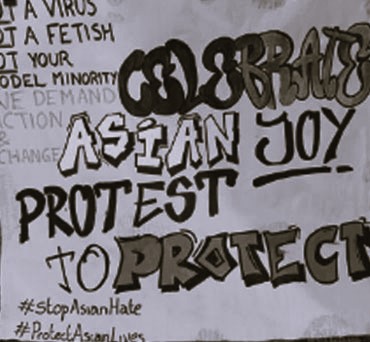 T A VIRUS
OT A FETISH
OT YOUR
ODEL MINORITY
WE DEMAND
ACTION
&
CHANGE
CELEBRATE
ASIAN JOY
PROTEST
TO PROTECT
#StopAsianHate
#ProtectAsianLives